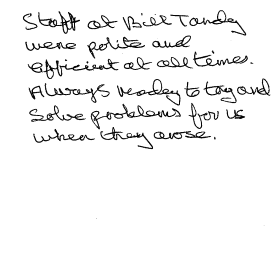 Staff at Bill Tandy
were polite and
efficient at all times.
Always ready to try and
solve problems for us
when they arose.